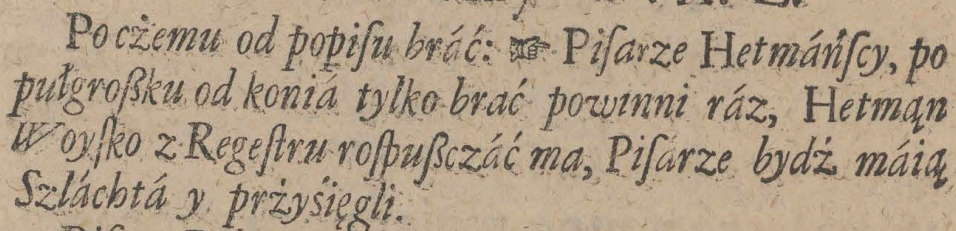 Poczemu od popiſu bráć: ☞ Piſarze Hetmáńſcy, po
pułgroßku od koniá tylko brać powinni ráz, Hetmąn
Woyſko z Regeſtru roſpußczáć ma, Piſarze bydż máią
Szláchtá y prżyśięgli.